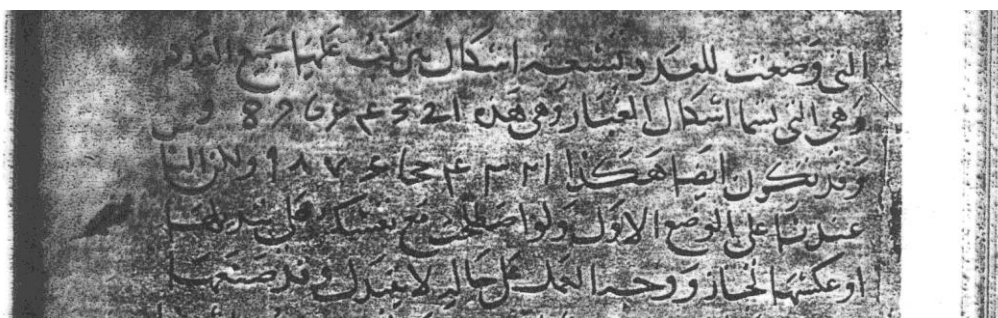 التي وضعت للعدد تسعة اشكال يتركب عليها جميع العدد
وهي التي تسما اشكال الغبار وهي هذه
وقد تكون ايضا هكذا ولاكن الناس
عندنا على الوضع الاول ولو اصطلحت مع نفسك على تبديلها
او عكسها لجاز ووجه العمل على حاله لا يتبدل وقد صنعها